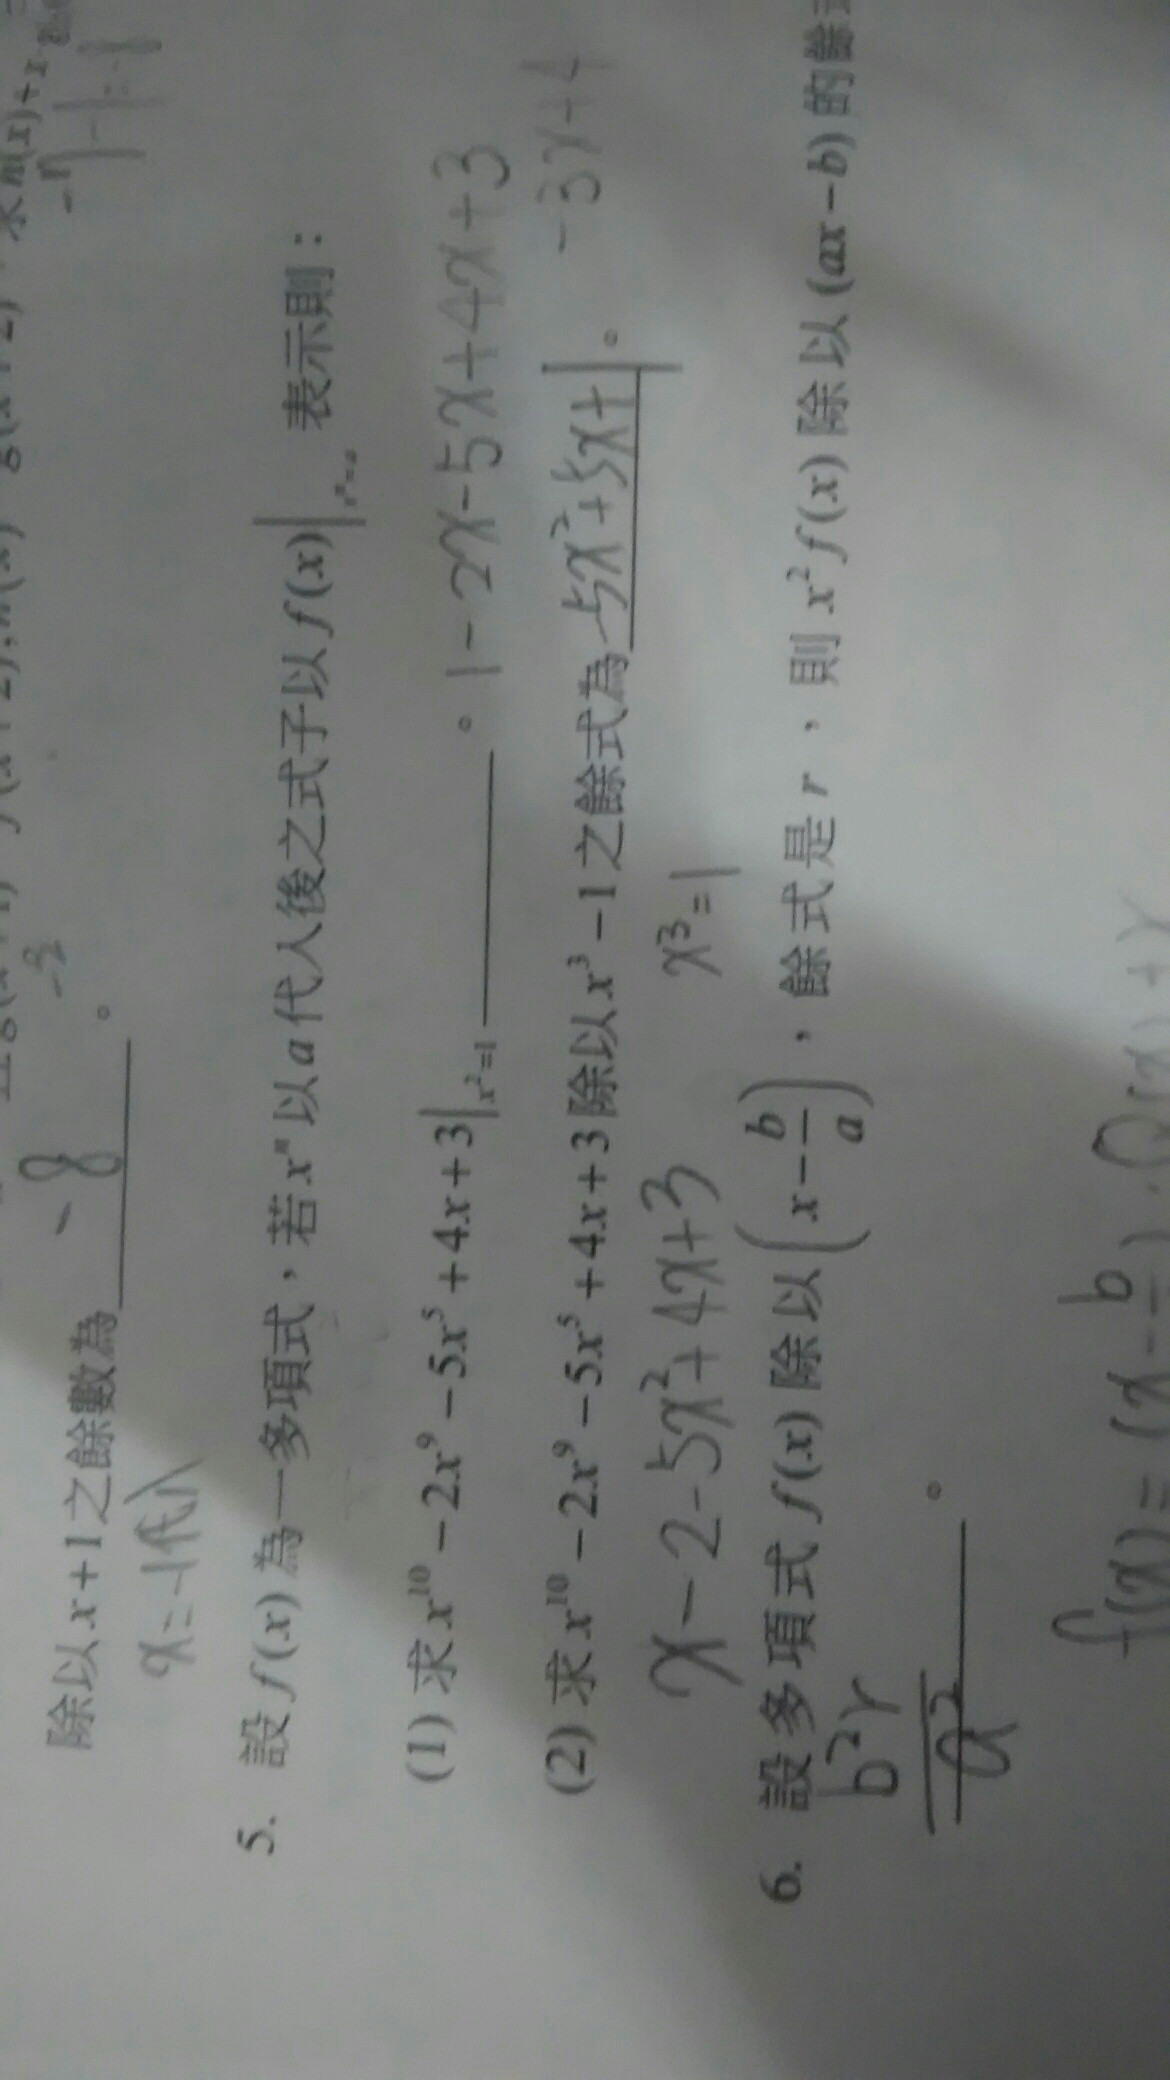 除以 x+1 之餘數為 -8 。
x=-1代入
5. 設 f(x) 為一多項式，若 xⁿ 以 a 代入後之式子以 f(x)|ₓⁿ₌ₐ 表示則：
(1) 求 x¹⁰-2x⁹-5x⁵+4x+3|ₓ²₌₁ ______ 。 1-2x-5x+4x+3
-3x+4
(2) 求 x¹⁰-2x⁹-5x⁵+4x+3 除以 x³-1 之餘式為 -5x²+5x+1 。
x-2-5x²+4x+3 x³=1
6. 設多項式 f(x) 除以 (x-b/a)，餘式是 r，則 x²f(x) 除以 (ax-b) 的餘
b²r/a² 。
f(x)=(x-b